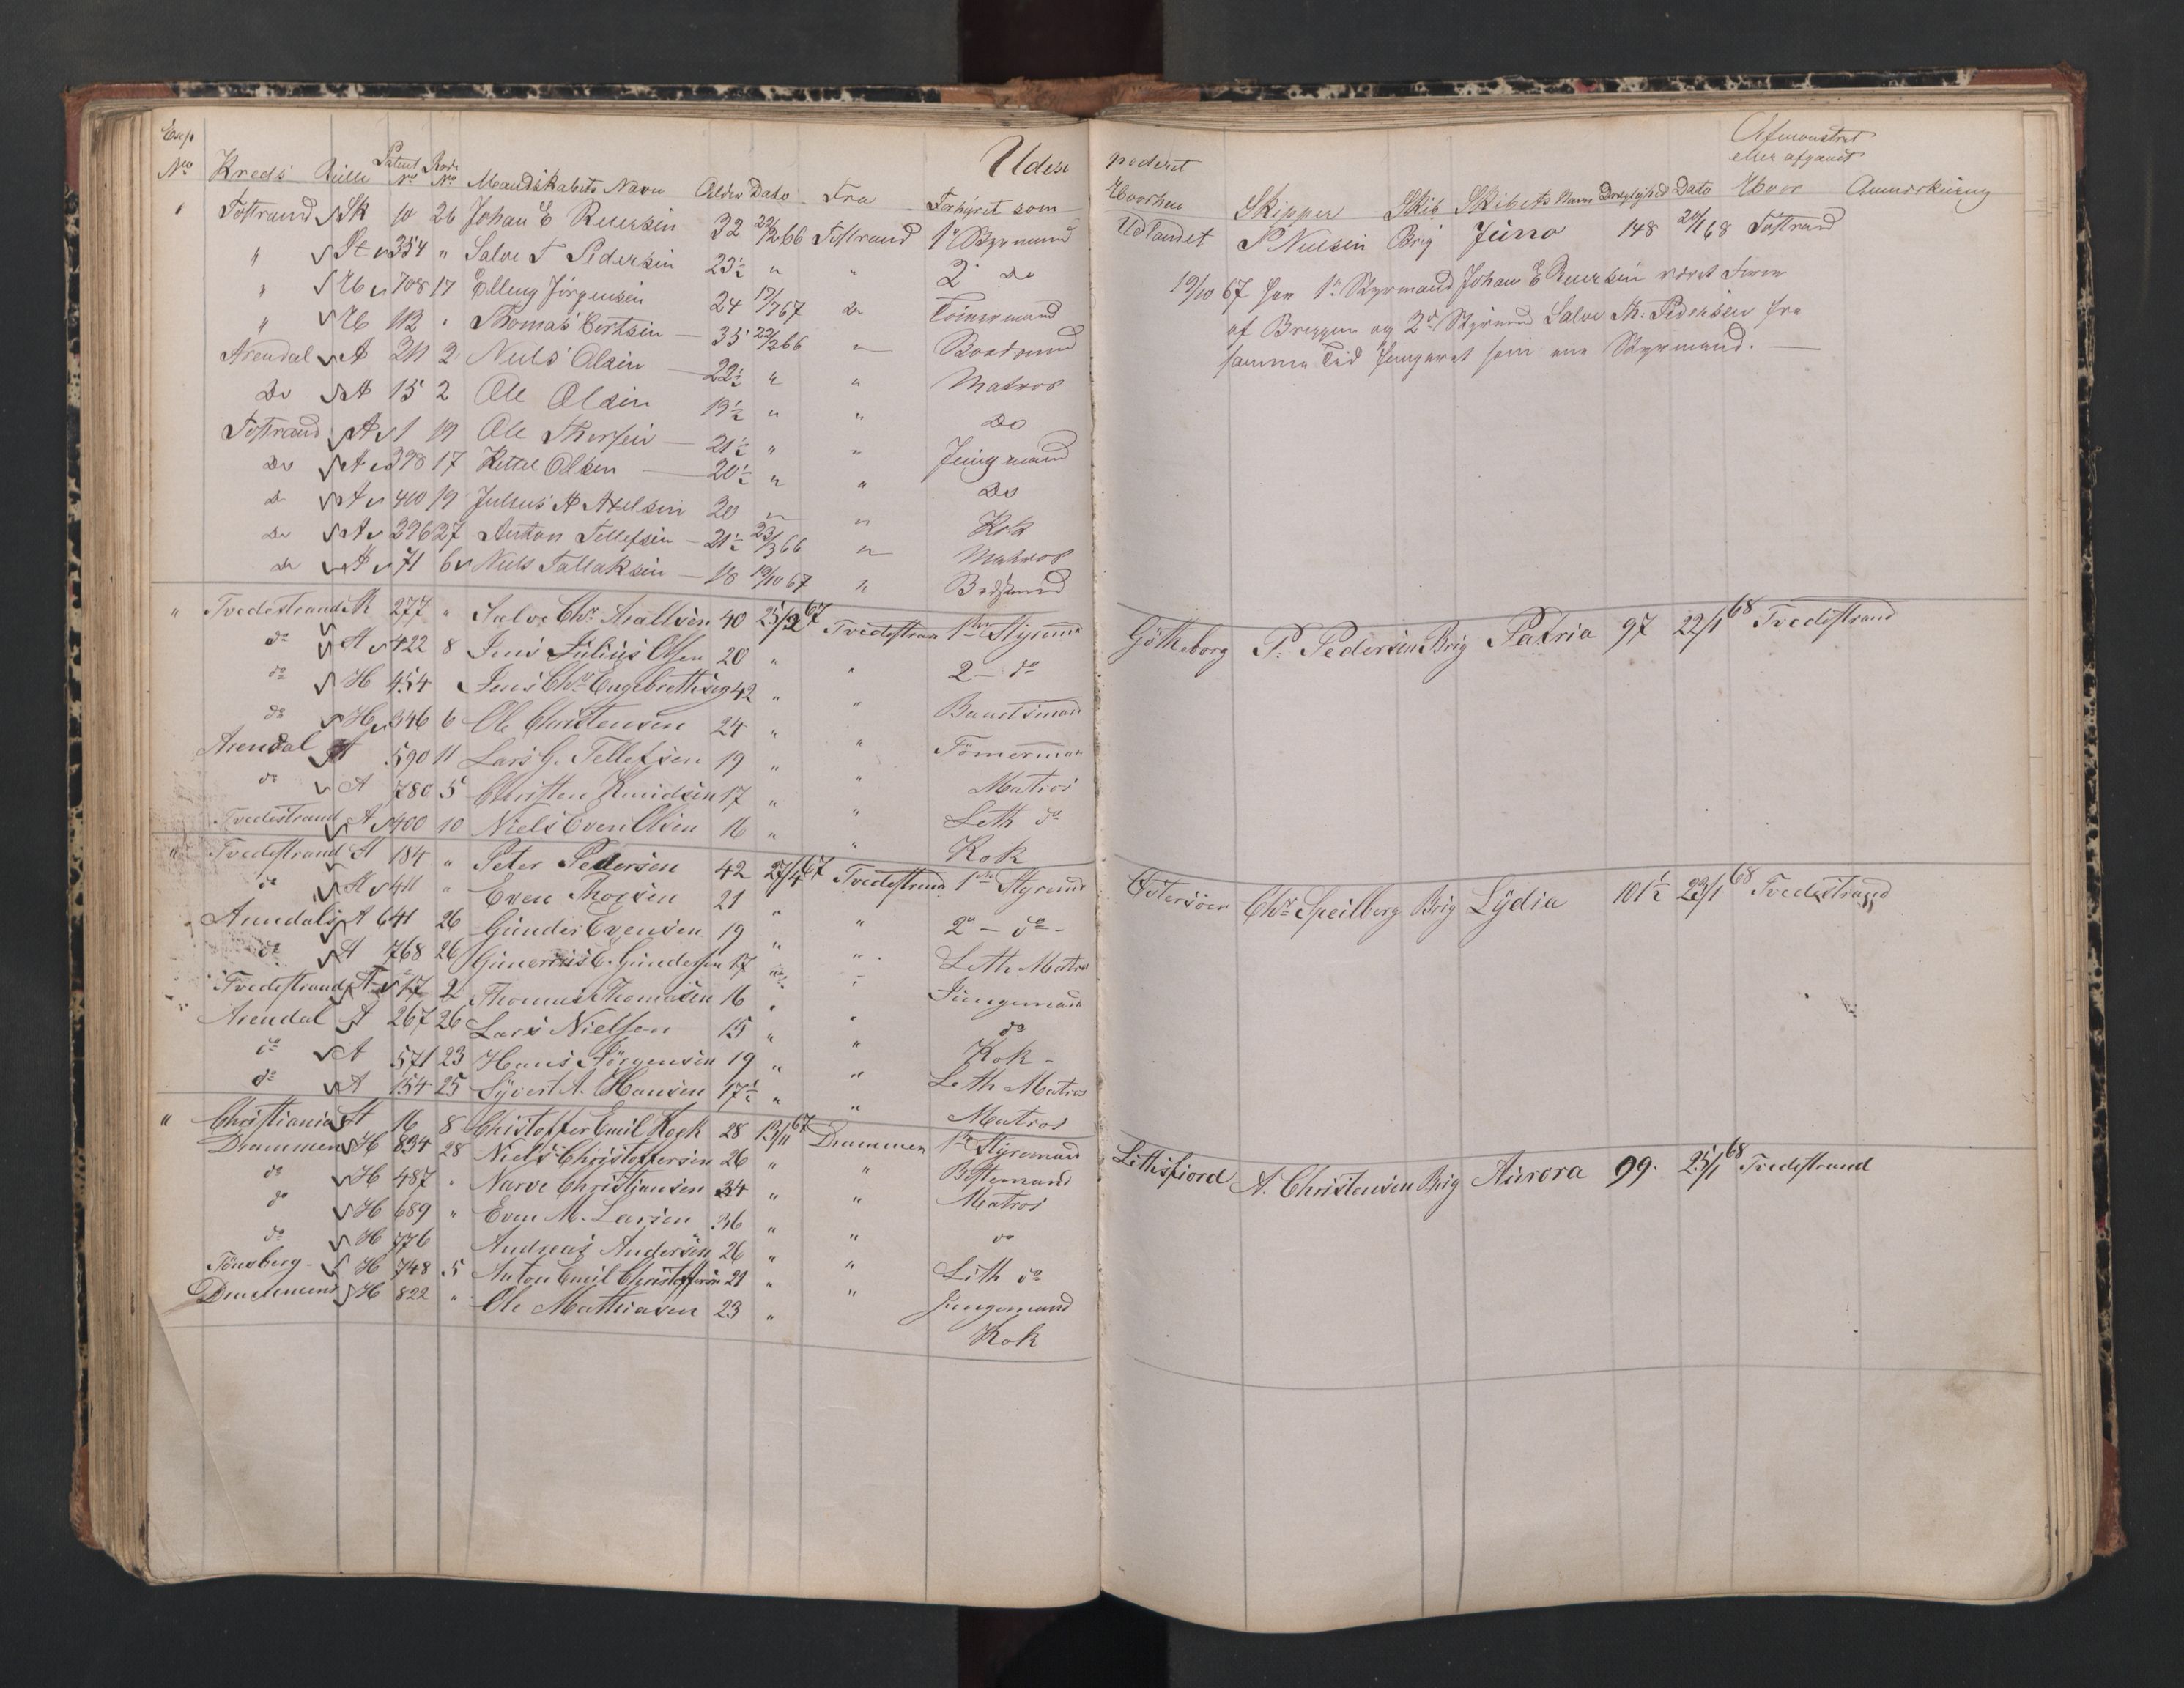 Exp
No Kreds Rulle Patent No Rode No Mandskabets Navn Alder Dato Fra Udex Forhyret som
" Tostrand Sk 10 26 Johan E 32 22/2 66 Tostrand 1ste Styrmand
" St 354 " Salve T Pedersen 23½ " " 2 do
" Ub 708 17 Elling Jörgensen 24 17/7 67 do Tömermand
" Ub 112 " Thomas 35 22/2 66 " Baadsmand
Arendal A 211 2 Niels Olsen 22½ " " Matros
Do A 15 2 Ole Olsen 19½ " " Do
Tostrand A 1 19 Ole 21½ " " Jungmand
Do A 398 17 Kittel Olsen 20½ " " Do
do A 410 19 Julius A Axelsen 20 " " Kok
do A 396 27 Anton Tellefsen 21½ 23/3 66 " Matros
do A 71 6 Niels Tallaksen 18 19/10 67 " Baadsmand
" Tvedestrand St 277 " Salve Chr. 40 25/3 67 Tvedestrand 1ste Styrmd
do A 422 8 Jens Julius Olsen 20 " " 2 - do
do H 454 Jens Chr. Engebrethsen 42 " " Baadsmand
do H 346 6 Ole Christensen 24 " " Tömermand
Arendal A 590 11 Lars G. Tellefsen 19 " " Matros
do A 780 5 Christen Knudsen 17 " " Leth do
Tvedestrand A 400 10 Niels Even Olsen 16 " " Kok
" Tvedestrand St 184 " Peter Pedersen 42 27/4 67 Tvedestrand 1ste Styrmd
do St 411 " Even Thorsen 21 " " 2 - do -
Arendals A 641 26 Gunder Evensen 19 " " Leth Matros
do A 768 26 E. Gundersen 17 " " Jungemand
Tvedestrand A 17 2 Thomas Thomasen 16 " " do
Arendal A 267 26 Lars Nielsen 15 " " Kok -
do A 571 23 Hans Jörgensen 19 " " Leth Matros
do A 154 25 Syvert A. Hansen 17½ " " Matros
" Christiania St 16 8 Christoffer Emil Kock 28 13/11 67 Drammen 1ste Styrmand
Drammen H 834 28 Niels Christoffersen 26 " " Bostemand
do H 487 " Narve Christiansen 34 " " Matros
do H 689 " Even M. Larsen 36 " " do
do H 776 Andreas Andersen 26 " " Leth do
Tönsberg H 748 5 Anton Emil Christoffersen 21 " " Jungemand
Drammens H 822 " Ole Mathiasen 23 " Kok
pederet
Afmönstret
eller afgaaet
Hvorhen Skipper Skib Skibets Navn Drægtighed Dato Hvor Anmærkning
Udlandet P Nielsen Brig Juno 148 20/1 68 Tostrand
19/10 67 har 1ste Styrmand Johan E været Fører
af Briggen og 2den Styrmd Salve Th. Pedersen fra
samme Tid fungeret som ene Styrmand.
Götheborg P. Pedersen Brig Patria 97 22/1 68 Tvedestrand
Östersöen Chr. Speilberg Brig Lydia 101½ 23/1 68 Tvedestrand
Lithsfiord A. Christensen Brig Aurora 99. 25/1 68 Tvedestrand